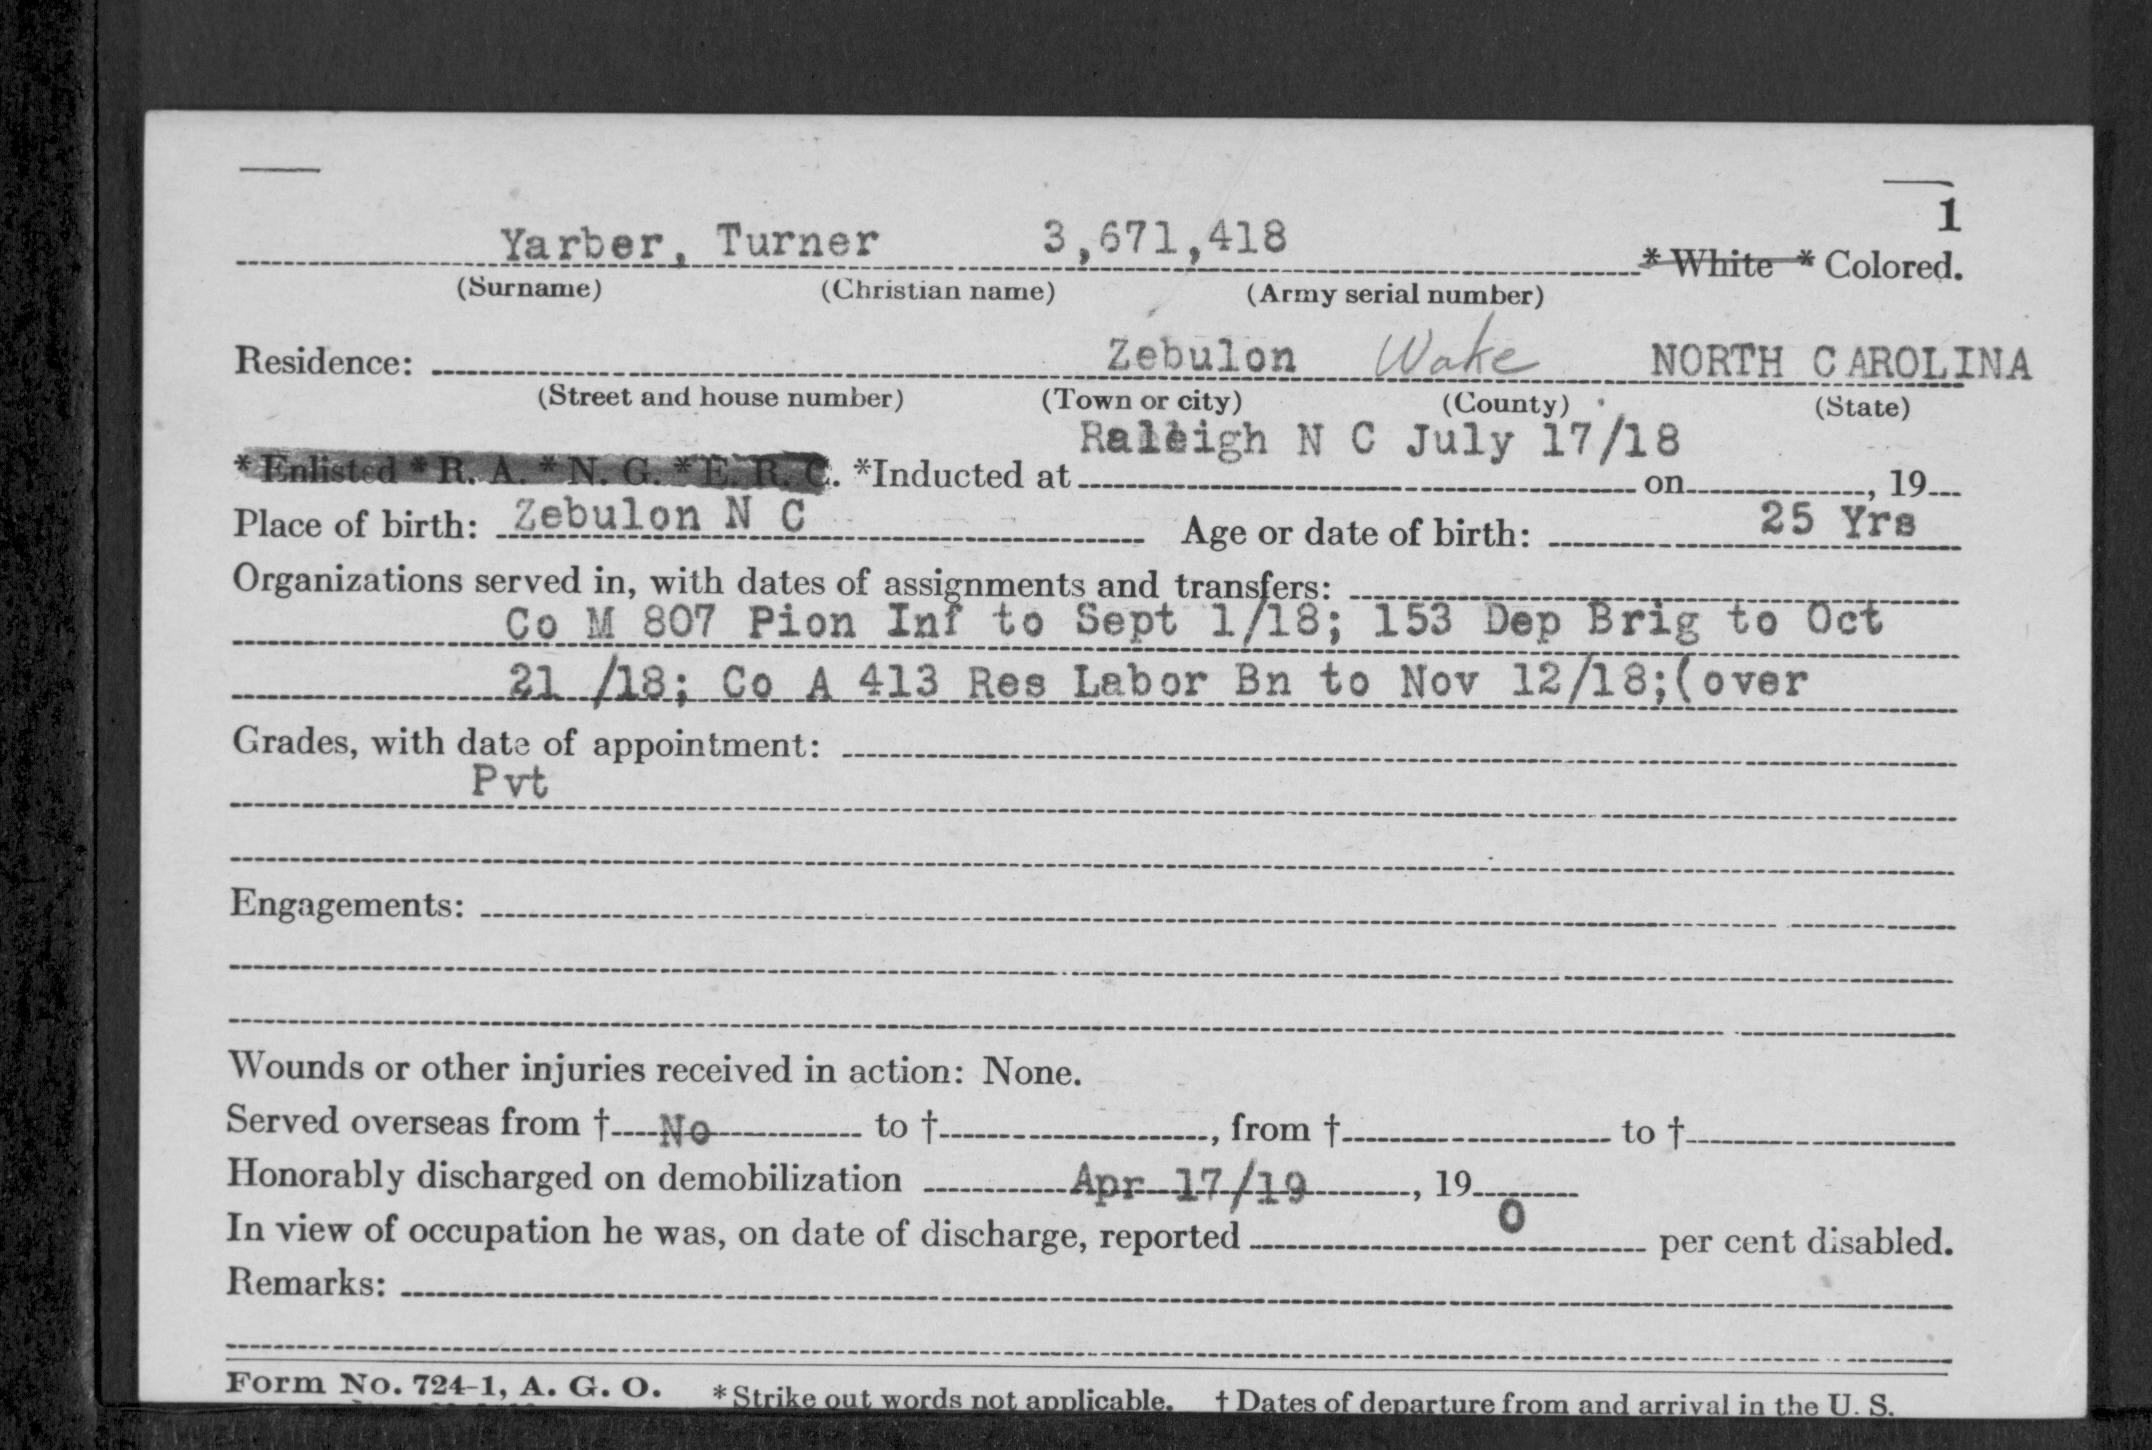 1
Yarber, Turner 3,671,418 * White * Colored.
(Surname) (Christian name) (Army serial number)
Residence: Zebulon Wake NORTH CAROLINA
(Street and house number) (Town or city) (County) (State)
Raleigh N C July 17/18
* Enlisted * R. A. * N. G. * E. R. C. *Inducted at on , 19
Place of birth: Zebulon N C Age or date of birth: 25 Yrs
Organizations served in, with dates of assignments and transfers:
Co M 807 Pion Inf to Sept 1/18; 153 Dep Brig to Oct
21 /18; Co A 413 Res Labor Bn to Nov 12/18;(over
Grades, with date of appointment:
Pvt
Engagements:
Wounds or other injuries received in action: None.
Served overseas from † No to † , from † to †
Honorably discharged on demobilization Apr 17/19 , 19
In view of occupation he was, on date of discharge, reported 0 per cent disabled.
Remarks:
Form No. 724-1, A. G. O. * Strike out words not applicable. † Dates of departure from and arrival in the U. S.